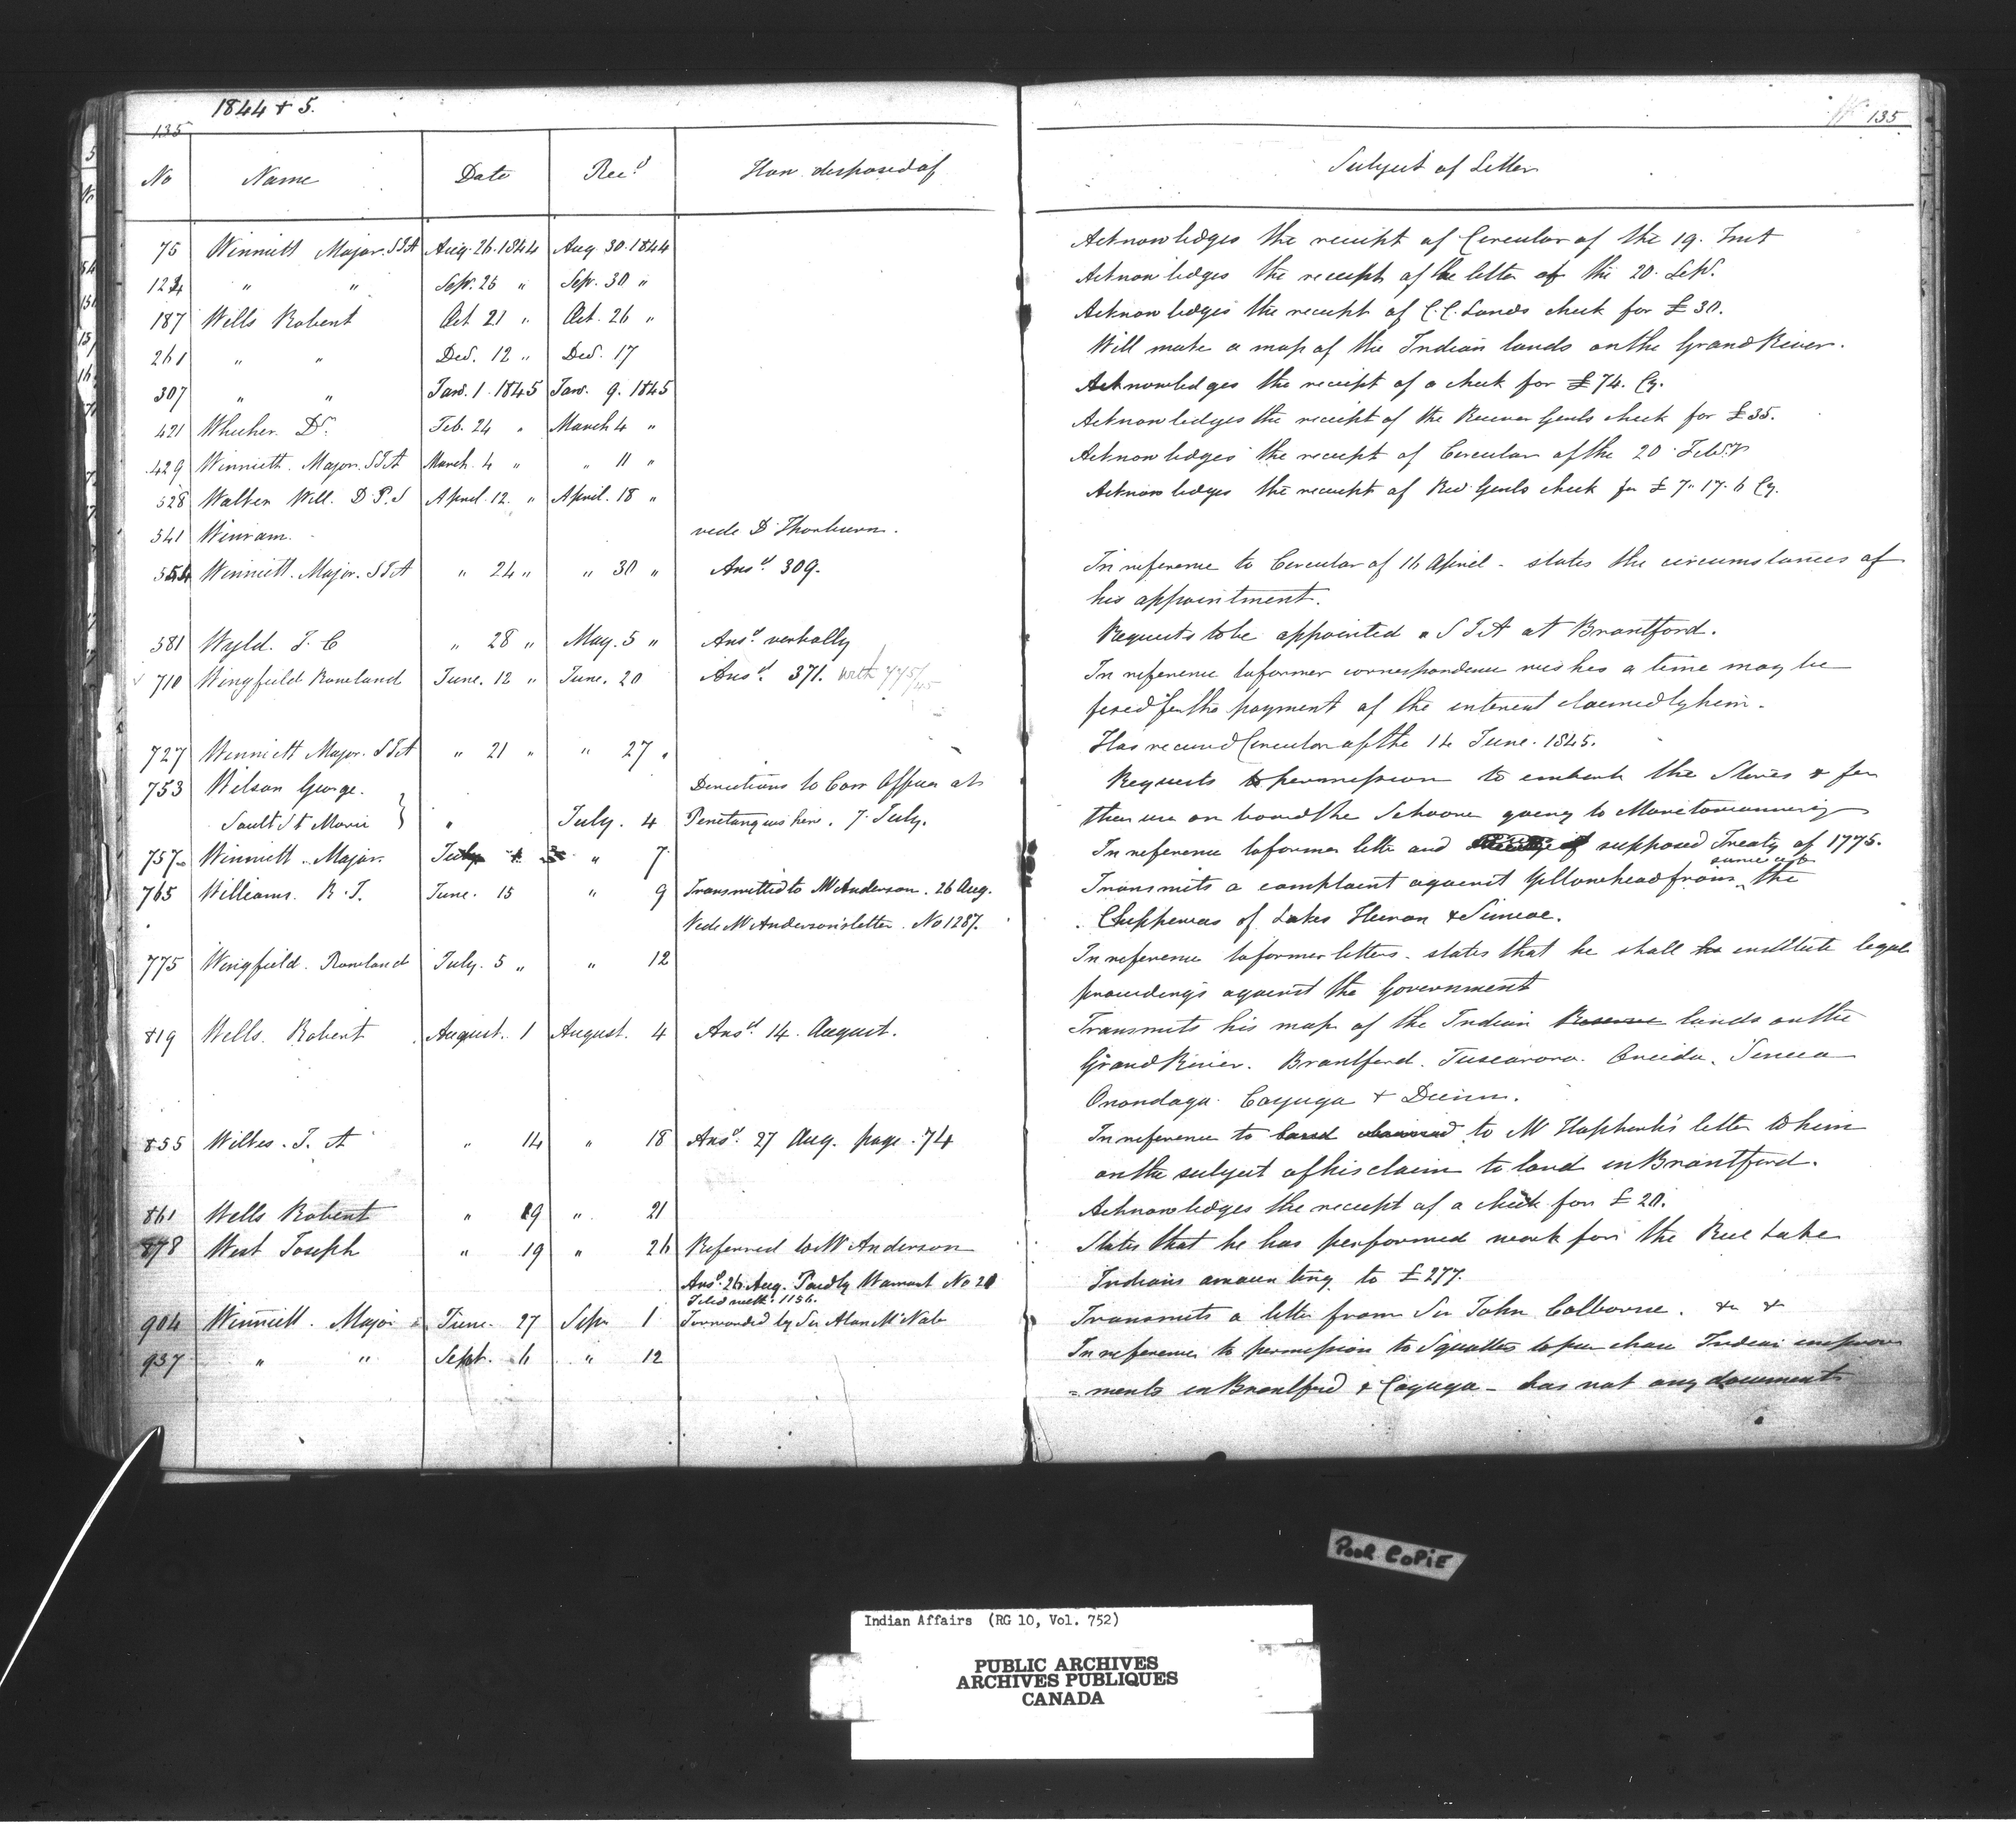 1844 + 5.
135
W 135
No Name Date Rec.d How disposed of Subject of Letter
75 Winniett Major. S I A Aug. 26. 1844 Aug. 30. 1844 Acknowledges the receipt of Circular of the 19. Inst
124 " " Sep. 25 " Sep. 30 " Acknowledges the receipt of the letter of the 20. Sep.
187 Wells Robert Oct 21 " Oct. 26 " Acknowledges the receipt of C. C. Lands check for £30.
261 " " Dec. 12 " Dec. 17 Will make a map of the Indian lands on the Grand River.
307 " " Jan. 1. 1845 Jan. 9. 1845 Acknowledges the receipt of a check for £74. Cy.
421 Whicher. Dr. Feb. 24 " March 4 " Acknowledges the receipt of the Receiver Genls check for £35.
429 Winniett. Major. S I A March. 4 " " 11 " Acknowledges the receipt of Circular of the 20. Feb.y
528 Walker Will. D. P. S April. 12. " April. 18 " Acknowledges the receipt of Rec Genls check for £7. 17. 6 Cy.
541 Winram. vide D Thorburn.
554 Winniett. Major. S I A " 24 " " 30 " Ans.d 309. In reference to Circular of 16 April - states the circumstances of
his appointment.
581 Wyld. J. C " 28 " May. 5 " Ans.d verbally Requests to be appointed a S I A at Brantford.
710 Wingfield Rowland June. 12 " June. 20 Ans.d 371. with 775/45 In reference to former correspondence wishes a time may be
fixed for the payment of the interest claimed by him.
727 Winniett Major. S I A " 21 " " 27 " Has received Circular of the 14 June. 1845.
753 Wilson George. Directions to Com Officer at Requests to permission to embark the Stores &
Sault St Marie } " July. 4 Penetanguishene. 7. July. on board the Schooner going to Manetowanning
757 Winniett. Major. July " 7 In reference to former letter and supposed Treaty of 1775.
765 Williams. R. J. June. 15 " 9 Transmitted to Mr Anderson. 26 Aug. Transmits a complaint against Yellowhead from some of the
Vide Mr Anderson's letter. No 1287. Chippewas of Lakes Huron & Simcoe.
775 Wingfield. Rowland July. 5 " " 12 In reference to former letters. states that he shall institute legal
proceedings against the Government
819 Wells. Robert August. 1 August. 4 Ans.d 14. August. Transmits his map of the Indian Reserve lands on the
Grand River. Brantford. Tuscarora. Oneida. Seneca
Onondaga. Cayuga + Dunn.
855 Wilkes. J. A " 14 " 18 Ans.d 27 Aug. page. 74 In reference to to Mr letter to him
on the subject of his claim to land in Brantford.
861 Wells Robert " 19 " 21 Acknowledges the receipt of a check for £20.
878 West Joseph " 19 " 26 Referred to Mr Anderson States that he has performed work for the Rice Lake
Ans.d 26. Aug. Paid by Warrant No 20 Indians amounting to £277.
Filed with 1156.
904 Winniett. Major June. 27 Sep 1 Forwarded by Sir Alan McNab Transmits a letter from Sir John Colborne. &c &
937 " " Sept. 6 " 12 In reference to permission to Squatters to purchase Indian improve
= ments in Brantford & Cayuga - has not any documents
POOR COPIE
Indian Affairs (RG 10, Vol. 752)
PUBLIC ARCHIVES
ARCHIVES PUBLIQUES
CANADA